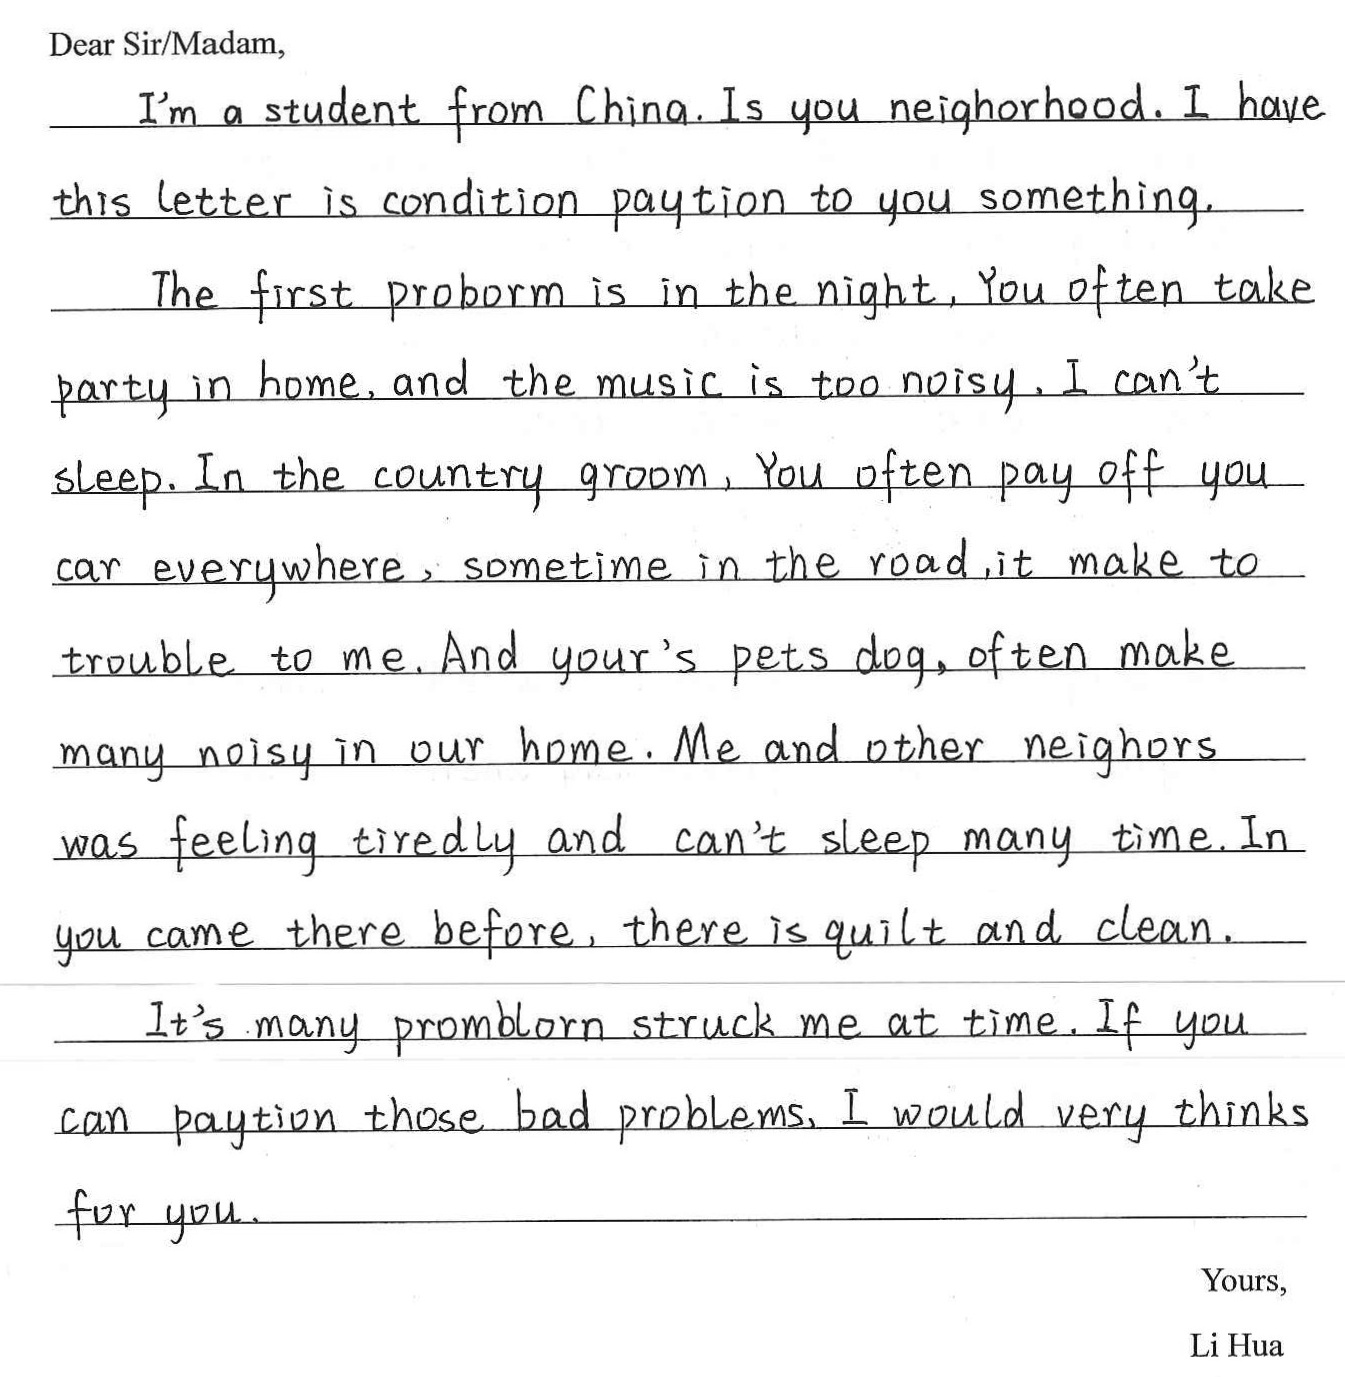 Dear Sir/Madam,
I'm a student from China. Is you neighorhood. I have
this letter is condition paytion to you something.
The first proborm is in the night, You often take
party in home, and the music is too noisy. I can't
sleep. In the country groom, You often pay off you
car everywhere, sometime in the road, it make to
trouble to me. And your's pets dog, often make
many noisy in our home. Me and other neighors
was feeling tiredly and can't sleep many time. In
you came there before, there is quilt and clean.
It's many promblorn struck me at time. If you
can paytion those bad problems, I would very thinks
for you.
Yours,
Li Hua